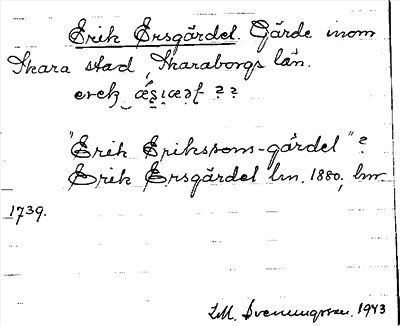 Erik Ersgärdet. Gärde inom
Skara stad, Skaraborgs län.
"Erik Eriksson-gärdet"?
Erik Ersgärdet lm. 1880; lm.
1739.
LM. Svenungsson. 1943